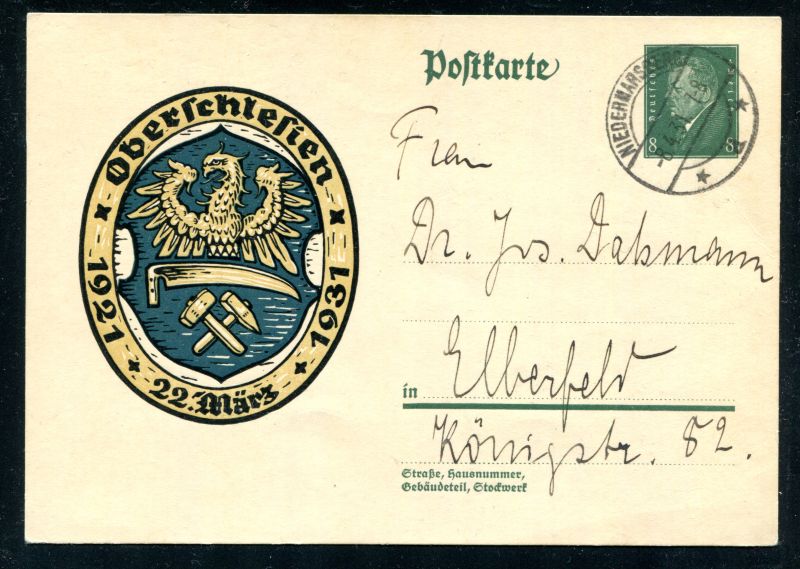 Oberschlesien
1921
1931
22. März
Postkarte
Deutsches Reich
8 8
NIEDERMARSBERG
Frau
Dr. Jos. Dahmann
in Elberfeld
Königstr. 82.
Straße, Hausnummer,
Gebäudeteil, Stockwerk